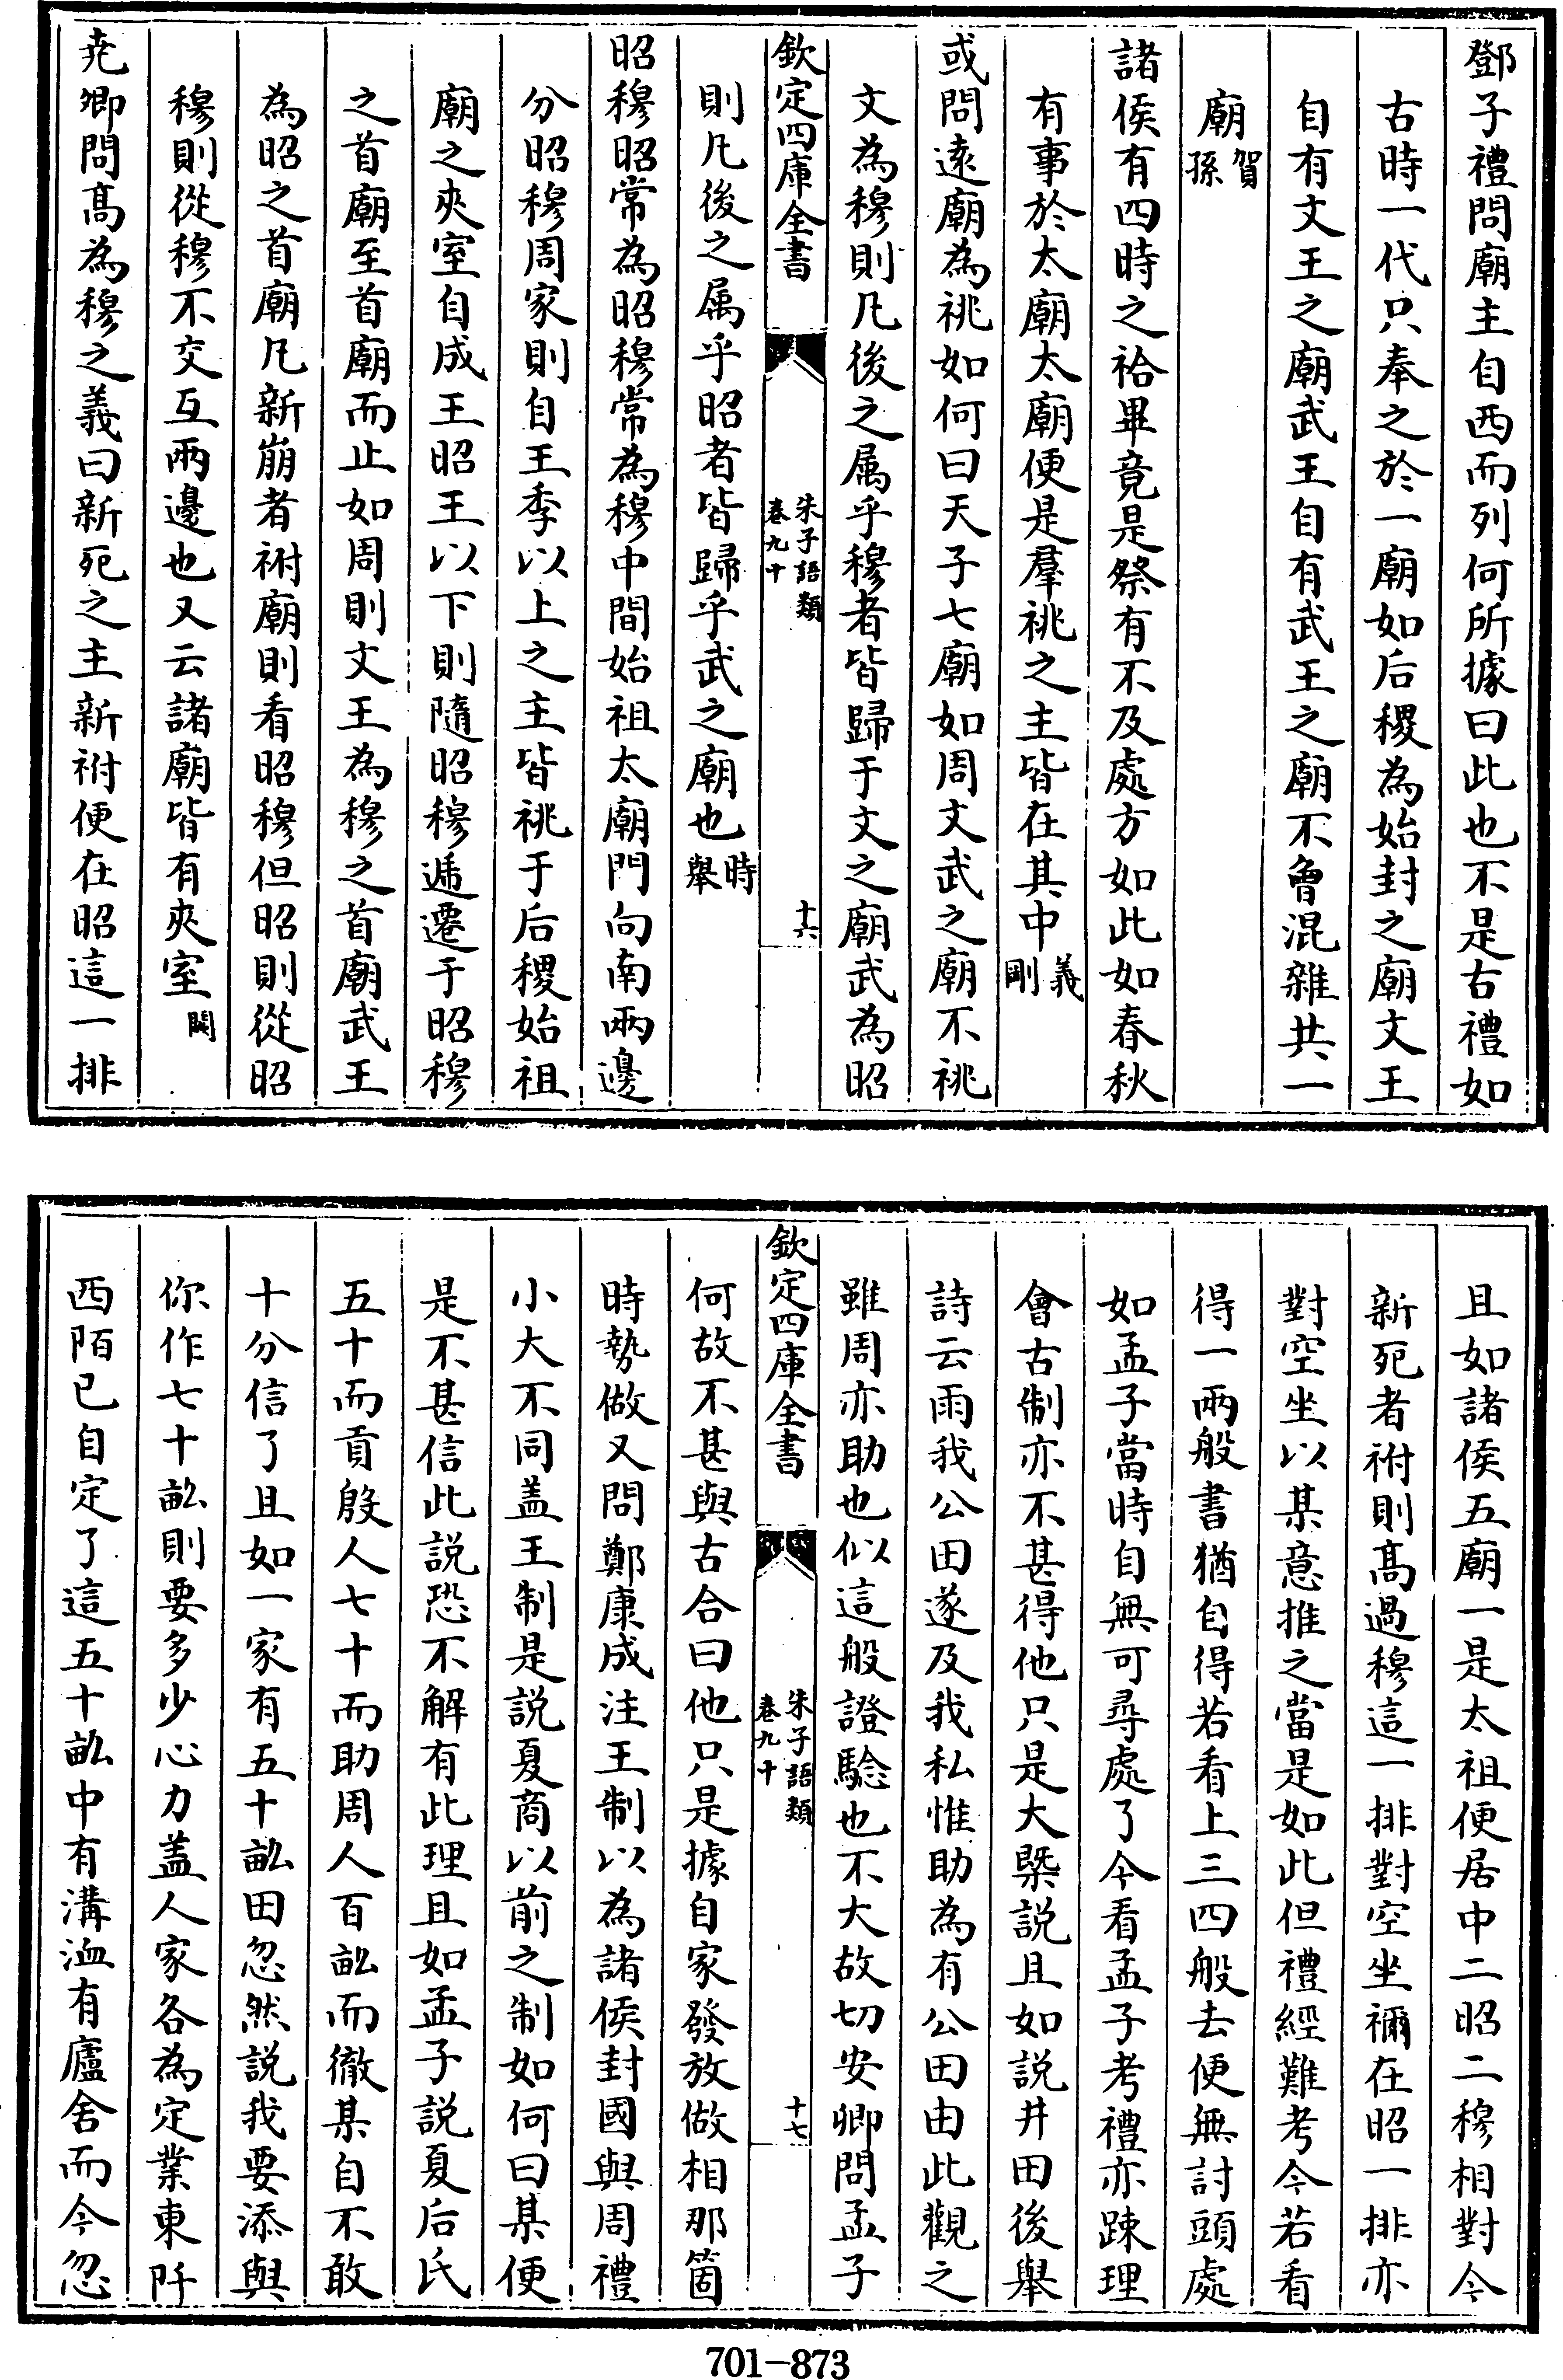 鄧子禮問廟主自西而列何所據曰此也不是古禮如
古時一代只奉之於一廟如后稷為始封之廟文王
自有文王之廟武王自有武王之廟不曾混雜共一
廟賀孫
諸侯有四時之祫畢竟是祭有不及處方如此如春秋
有事於太廟太廟便是羣祧之主皆在其中義剛
或問遠廟為祧如何曰天子七廟如周文武之廟不祧
文為穆則凡後之属乎穆者皆歸于文之廟武為昭
欽定四庫全書
朱子語類
卷九十
十六
則凡後之属乎昭者皆歸乎武之廟也時舉
昭穆昭常為昭穆常為穆中間始祖太廟門向南兩邊
分昭穆周家則自王季以上之主皆祧于后稷始祖
廟之夾室自成王昭王以下則隨昭穆遞遷于昭穆
之首廟至首廟而止如周則文王為穆之首廟武王
為昭之首廟凡新崩者祔廟則看昭穆但昭則從昭
穆則從穆不交互兩邊也又云諸廟皆有夾室閎
尭卿問髙為穆之義曰新死之主新祔便在昭這一排
且如諸侯五廟一是太祖便居中二昭二穆相對今
新死者祔則髙過穆這一排對空坐禰在昭一排亦
對空坐以某意推之當是如此但禮經難考今若看
得一兩般書猶自得若看上三四般去便無討頭處
如孟子當時自無可尋處了今看孟子考禮亦踈理
會古制亦不甚得他只是大槩説且如説井田後舉
詩云雨我公田遂及我私惟助為有公田由此觀之
雖周亦助也似這般證驗也不大故切安卿問孟子
欽定四庫全書
朱子語類
卷九十
十七
何故不甚與古合曰他只是據自家發放做相那箇
時勢做又問鄭康成注王制以為諸侯封國與周禮
小大不同盖王制是説夏商以前之制如何曰某便
是不甚信此説恐不解有此理且如孟子説夏后氏
五十而貢殷人七十而助周人百畝而徹某自不敢
十分信了且如一家有五十畝田忽然説我要添與
你作七十畝則要多少心力盖人家各為定業東阡
西陌已自定了這五十畝中有溝洫有廬舍而今忽
701-873